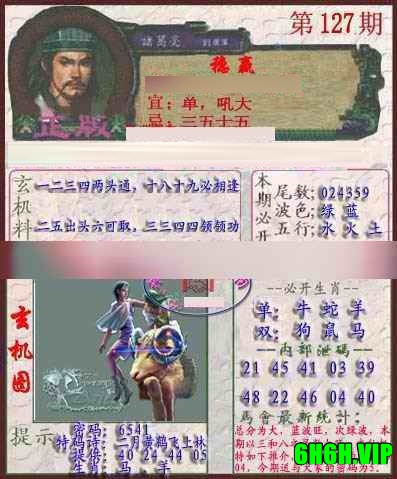 第127期
諸葛亮
稳赢
宜：单，吼大
忌：三五十五
正版
玄机料
一二三四两头通，十八十九必相逢
二五出头六可取，三三四四领领功
本期必开
尾数;024359
波色;绿 蓝
五行;水 火 土
--必开生肖--
单: 牛 蛇 羊
双: 狗 鼠 马
--内部泄码--
21 45 41 03 39
48 22 46 04 40
马會最新统计:
总分为大，蓝波旺，次绿波，本
玄机图
提示
密码: 6541
特码诗: 二月黄鹤飞上林
提倍: 40 24 44 05
生肖: 马 . 羊
04，今期送与大家的密码为5.
6HGH.VIP